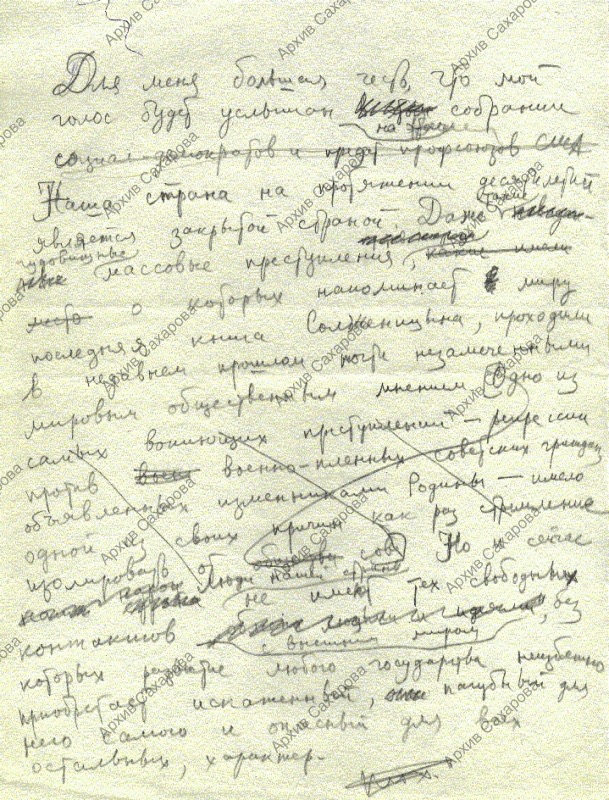 Для меня большая честь, что мой
голос будет услышан собрании
на этом
социал-демократов и профсоюзов США
Наша страна на протяжении десятилетий
является закрытой страной. Даже такие
чудовищные массовые преступления, какие имели
место о которых напоминает миру
последняя книга Солженицына, проходили
в недавнем прошлом почти незамеченными
мировым общественным мнением. Одно из
самых вопиющих преступлений – репрессии
против военно-пленных советских граждан
объявленных изменниками Родины – имело
одной из своих причин как раз стремление
изолировать от сов Но и сейчас
люди нашей страны не имеют тех свободных
контактов с внешним миром, без
которых развитие любого государства неизбежно
приобретает искаженный, пагубный для
него самого и опасный для всех
остальных, характер.
Архив Сахарова